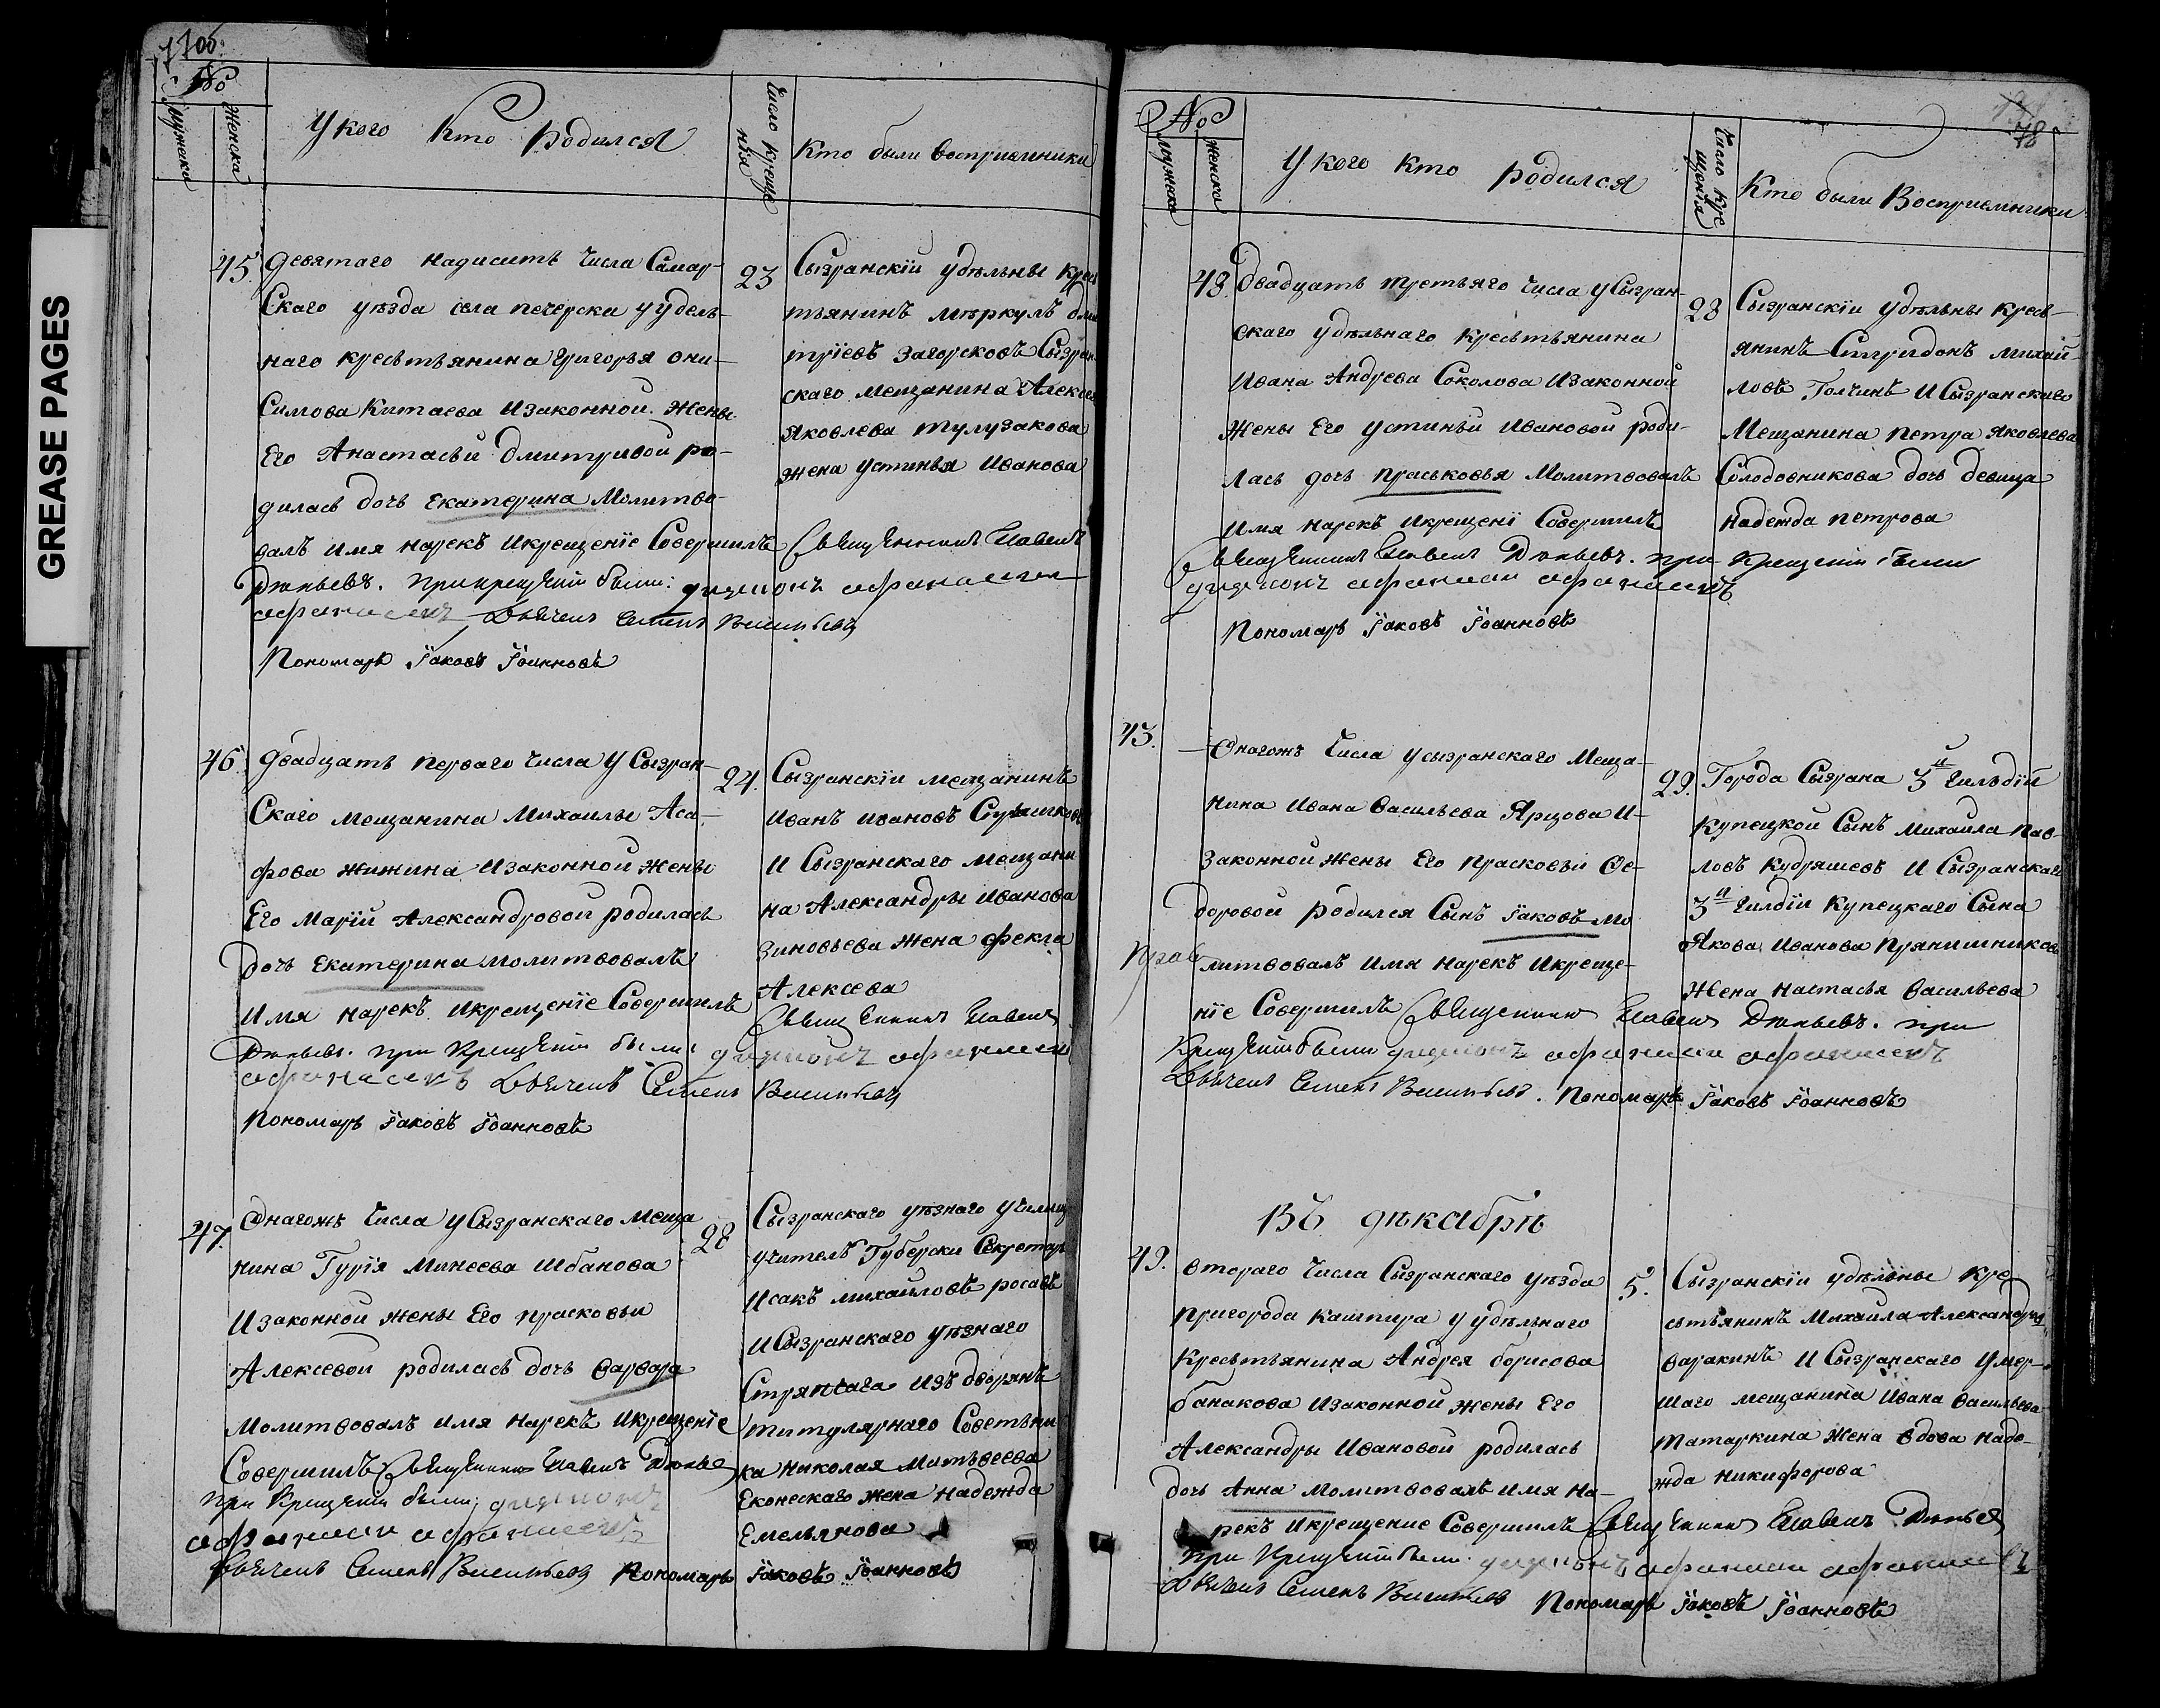 GREASE PAGES
№
Мужеска
Женска
У кого кто родился
Число креще
нія
Кто были восприемники
45.
девятаго надисить числа Самар-
скаго уѣзда села печерски у удель-
наго крестьянина Григорья они-
симова Китаева изаконной жены
Его Анастасьи дмитривой ро-
дилась дочь Екатерина Молитво-
валъ имя нарекъ икрещенїе Совершилъ Священникъ
при крещении были:
Дьячекъ Семенъ Васильевъ
Пономарь Їаковъ Їоанновъ
23
Сызранскїи удѣльны крес
тьянинъ Мѣркулъ дми
трїевъ Загорсковъ Сызран
скаго мещанина Алексея
Яковлева тулузакова
жена устинья Иванова
46.
двадцать перваго числа у Сызран-
скаго мещанина Михаилы Аса-
фова жижина изаконной жены
Его Марїи Александровой родилась
дочь Екатерина молитвовалъ
имя нарекъ икрещенїе Совершилъ Священникъ
при крещении были
Дьячекъ Семенъ Васильевъ
Пономарь Їаковъ Їоанновъ
24.
Сызранскїи мещанинъ
Иванъ Ивановъ
и Сызранскаго мещани
на Александры Иванова
зиновьева жена фекла
Алексеева
47.
Онагожъ числа у Сызранскаго меща
нина Гурїя Минеева Шбанова
изаконной жены Его прасковьи
Алексевой родилась дочь Варвара
молитвовалъ имя нарекъ икрещенїе
Совершилъ Священникъ
при крещении были
Дьячекъ Семенъ Васильевъ Пономарь Їаковъ Їоанновъ
28
Сызранскаго уѣзнаго училищ
учитель Губерски Секретарь
Исакъ михаиловъ росавъ
и Сызранскаго уѣзнаго
Стряпчага изъ дворянъ
титулярнаго Советни
ка Николая Матьвеева
Еконескаго жена Надежда
Емельянова
78
№
Мужеска
Женска
У кого кто родился
Число кре
щенїя
Кто были Восприемники
48.
двадцать третьяго числа у Сызран-
скаго удѣльнаго крестьянина
Ивана Андрева Соколова изаконной
жены Его устиньи Ивановой роди-
лась дочь праськовья Молитвовалъ
имя нарекъ икрещенї Совершилъ
Священникъ при крещении были
Пономарь Їаковъ Їоанновъ
28
Сызранскїи удѣльны кресь-
янинъ Спиридонъ михай-
ловъ Толчинъ и Сызранскаго
мещанина петра Яковлева
Солодовникова дочь девица
надежда петрова
43.
Онагожъ числа усызранскаго меща-
нина Ивана Васильева Ярцова и-
законной жены Его прасковьи Фе-
доровой родился сынъ Їаковъ мо
литвовалъ имя нарекъ икреще-
нїе Совершилъ Священникъ
при крещении были
Дьячекъ Семенъ Васильевъ. Пономарь Їаковъ Їоанновъ
29.
Города Сызрана 3й гильдїи
купецкой сынъ михаила пав-
ловъ кудряшевъ и Сызранскаго
3й гилдїи купецкаго сына
Якова Иванова прянишникова
жена настасья Васильева
Въ дѣкабрѣ
49.
втораго числа Сызранскаго уѣзда
пригорода кашпира у удѣльнаго
крестьянина Андрея борисова
банакова изаконной жены Его
Александры Ивановой родилась
дочь Анна молитвовалъ имя на-
рекъ икрещение Совершилъ Священникъ
при крещении были
Дьячекъ Семенъ Васильевъ Пономарь Їаковъ Їоанновъ
5.
Сызранскїи удѣльны кре
стьянинъ Михаила Александров
варакинъ и Сызранскаго умер-
шаго мещанина Ивана Васильева
татаркина жена вдова наде-
жда никифорова